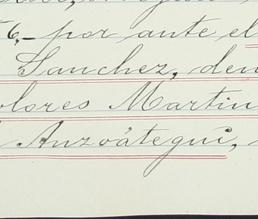 6,- por ante el
Sanchez, den
olores Martin
Anzoátegui,